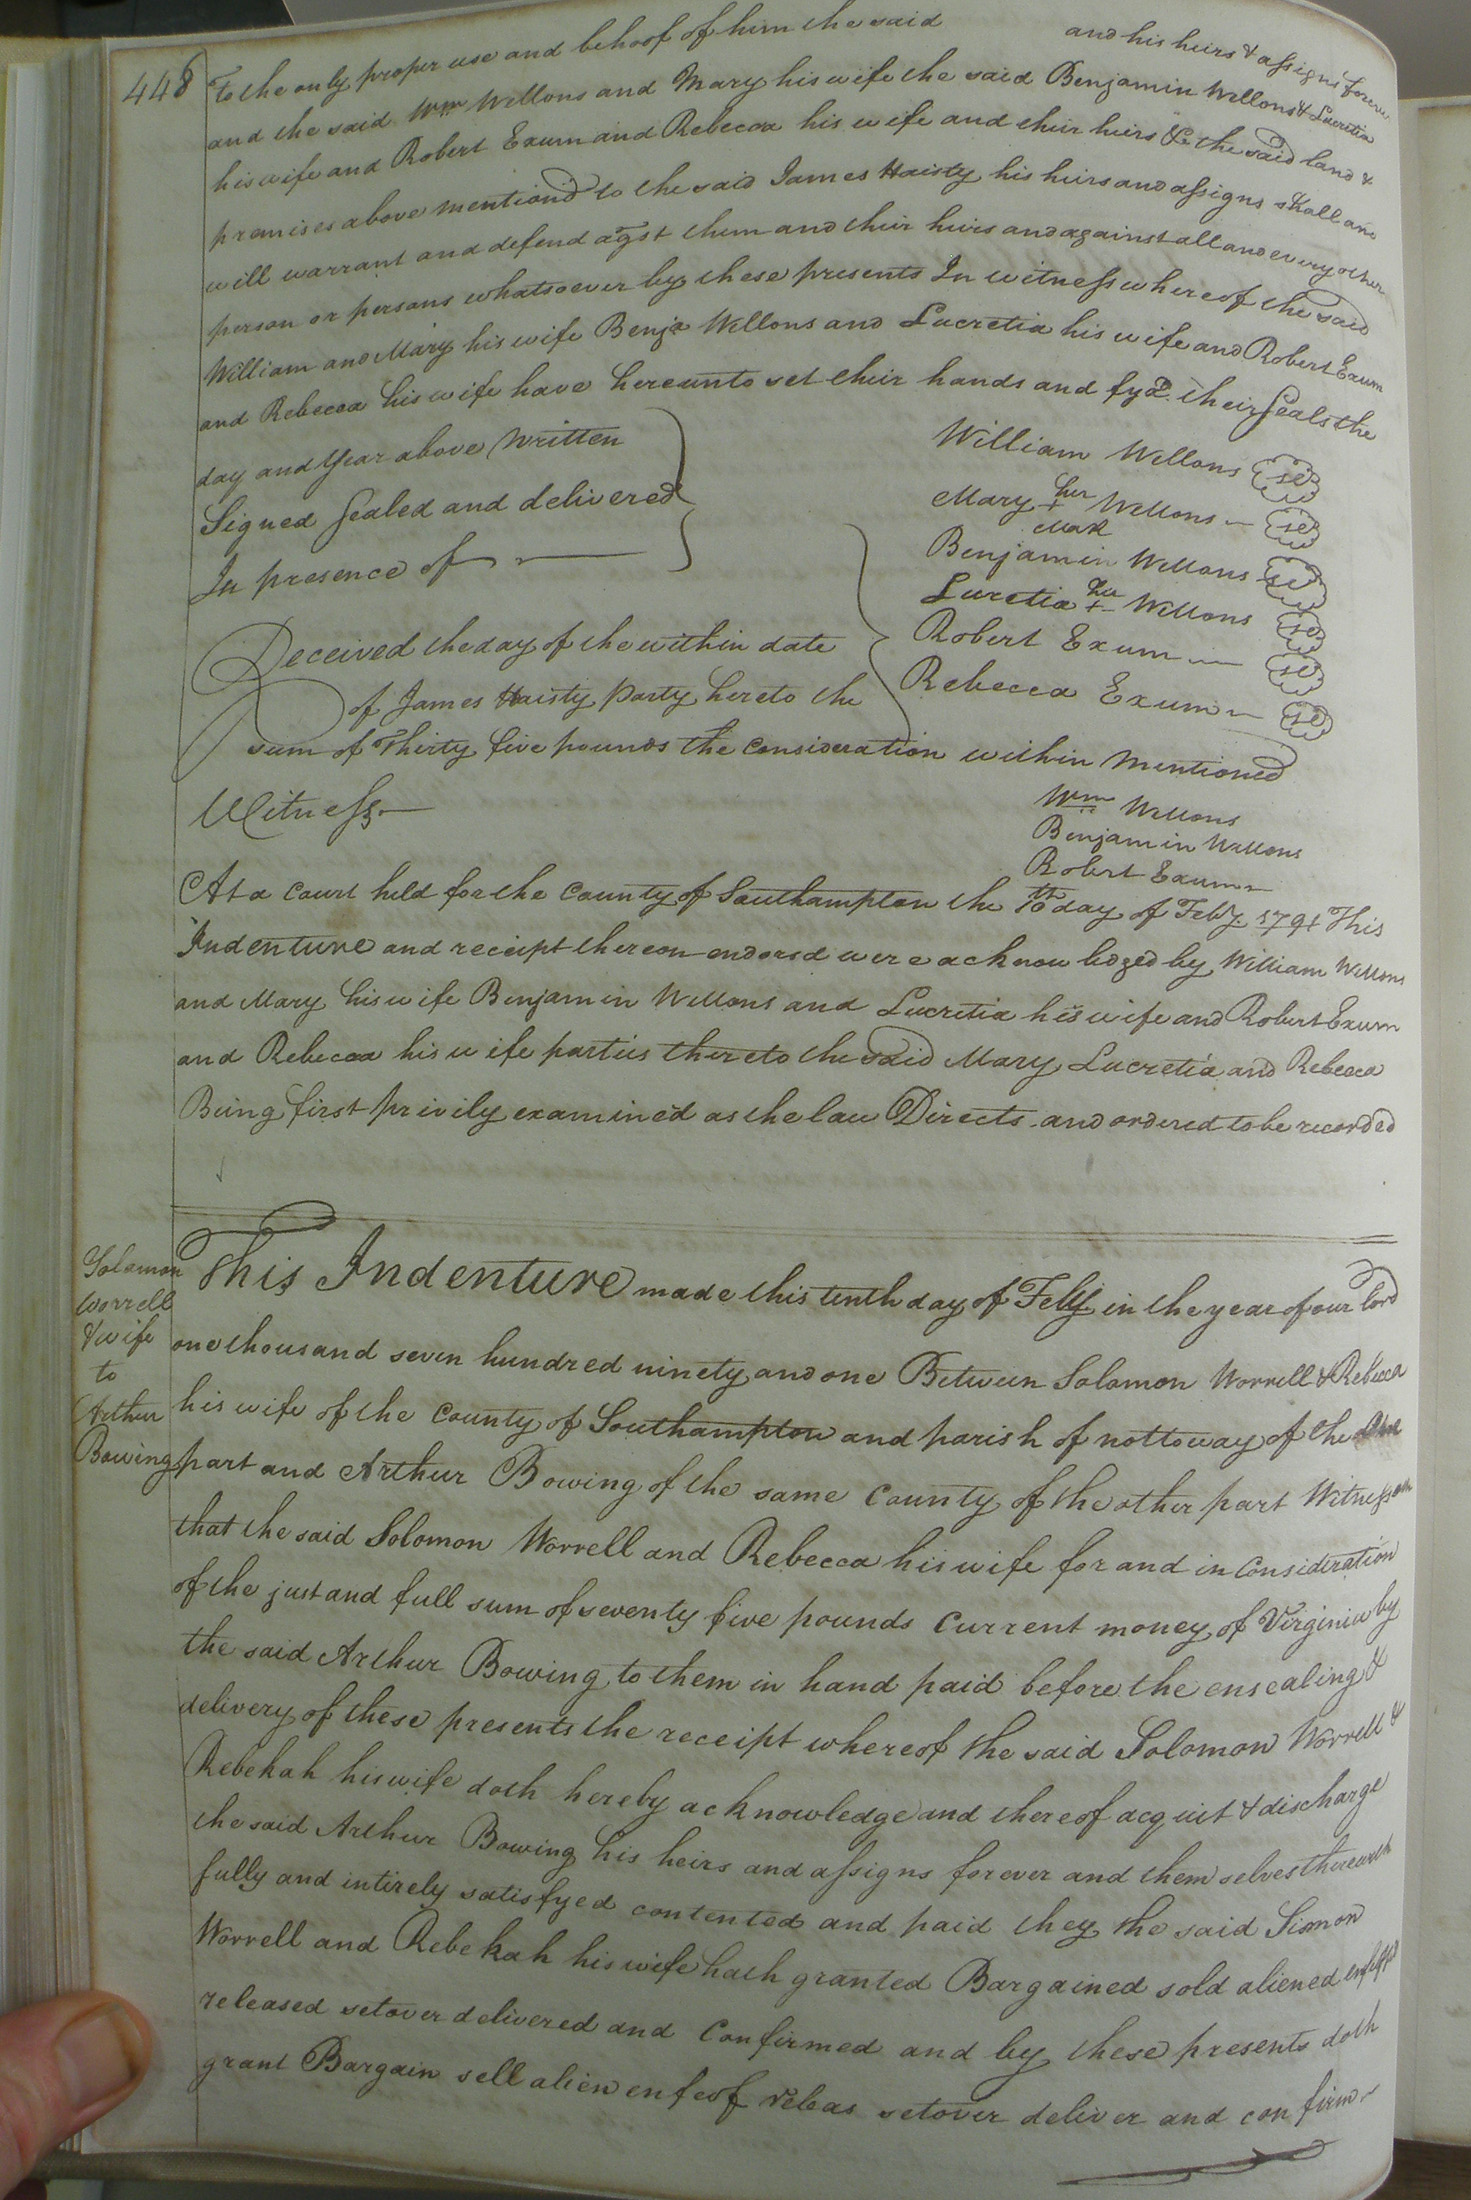 448
To the only proper use and behoof of him the said and his heirs & assigns forever
and the said Wm Wellons and Mary his wife the said Benjamin Wellons & Lucretia
his wife and Robert Exum and Rebecca his wife and their heirs &c the said land &
premises above mention'd to the said James Haisty his heirs and assigns shall and
will warrant and defend agst them and their heirs and against all and every other
person or persons whatsoever by these presents In witness whereof the said
William and Mary his wife Benja Wellons and Lucretia his wife and Robert Exum
and Rebecca his wife have hereunto set their hands and fyd. their Seals the
day and Year above Written
Signed Sealed and delivered
In presence of
William Wellons se
Mary her + Mark Wellons se
Benjamin Wellons se
Lucretia her + Wellons se
Robert Exum se
Rebecca Exum se
Received the day of the within date
of James Haisty Party hereto the
sum of Thirty five pounds the Consideration within Mentioned
Witness
Wm Wellons
Benjamin Wellons
Robert Exum
At a Court held for the County of Southampton the 10th day of Feby. 1791 This
Indenture and receipt thereon endorsd were acknowledged by William Wellons
and Mary his wife Benjamin Wellons and Lucretia his wife and Robert Exum
and Rebecca his wife parties thereto the said Mary Lucretia and Rebecca
Being first privily examined as the law Directs and ordered to be recorded
Solomon
Worrell
& wife
to
Arthur
Bowing
This Indenture made this tenth day of Feby. in the year of our Lord
one thousand seven hundred ninety and one Between Solomon Worrell & Rebecca
his wife of the County of Southampton and parish of nottoway of the one
part and Arthur Bowing of the same County of the other part Witnesseth
that the said Solomon Worrell and Rebecca his wife for and in Consideration
of the just and full sum of seventy five pounds Current money of Virginia by
the said Arthur Bowing to them in hand paid before the ensealing &
delivery of these presents the receipt whereof the said Solomon Worrell &
Rebekah his wife doth hereby acknowledge and thereof acquit & discharge
the said Arthur Bowing his heirs and assigns forever and them selves therewith
fully and intirely satisfyed contented and paid they the said Simon
Worrell and Rebekah his wife hath granted Bargained sold aliened enfeoffd
released setover delivered and Confirmed and by these presents doth
grant Bargain sell alien enfeof releas setover deliver and confirm